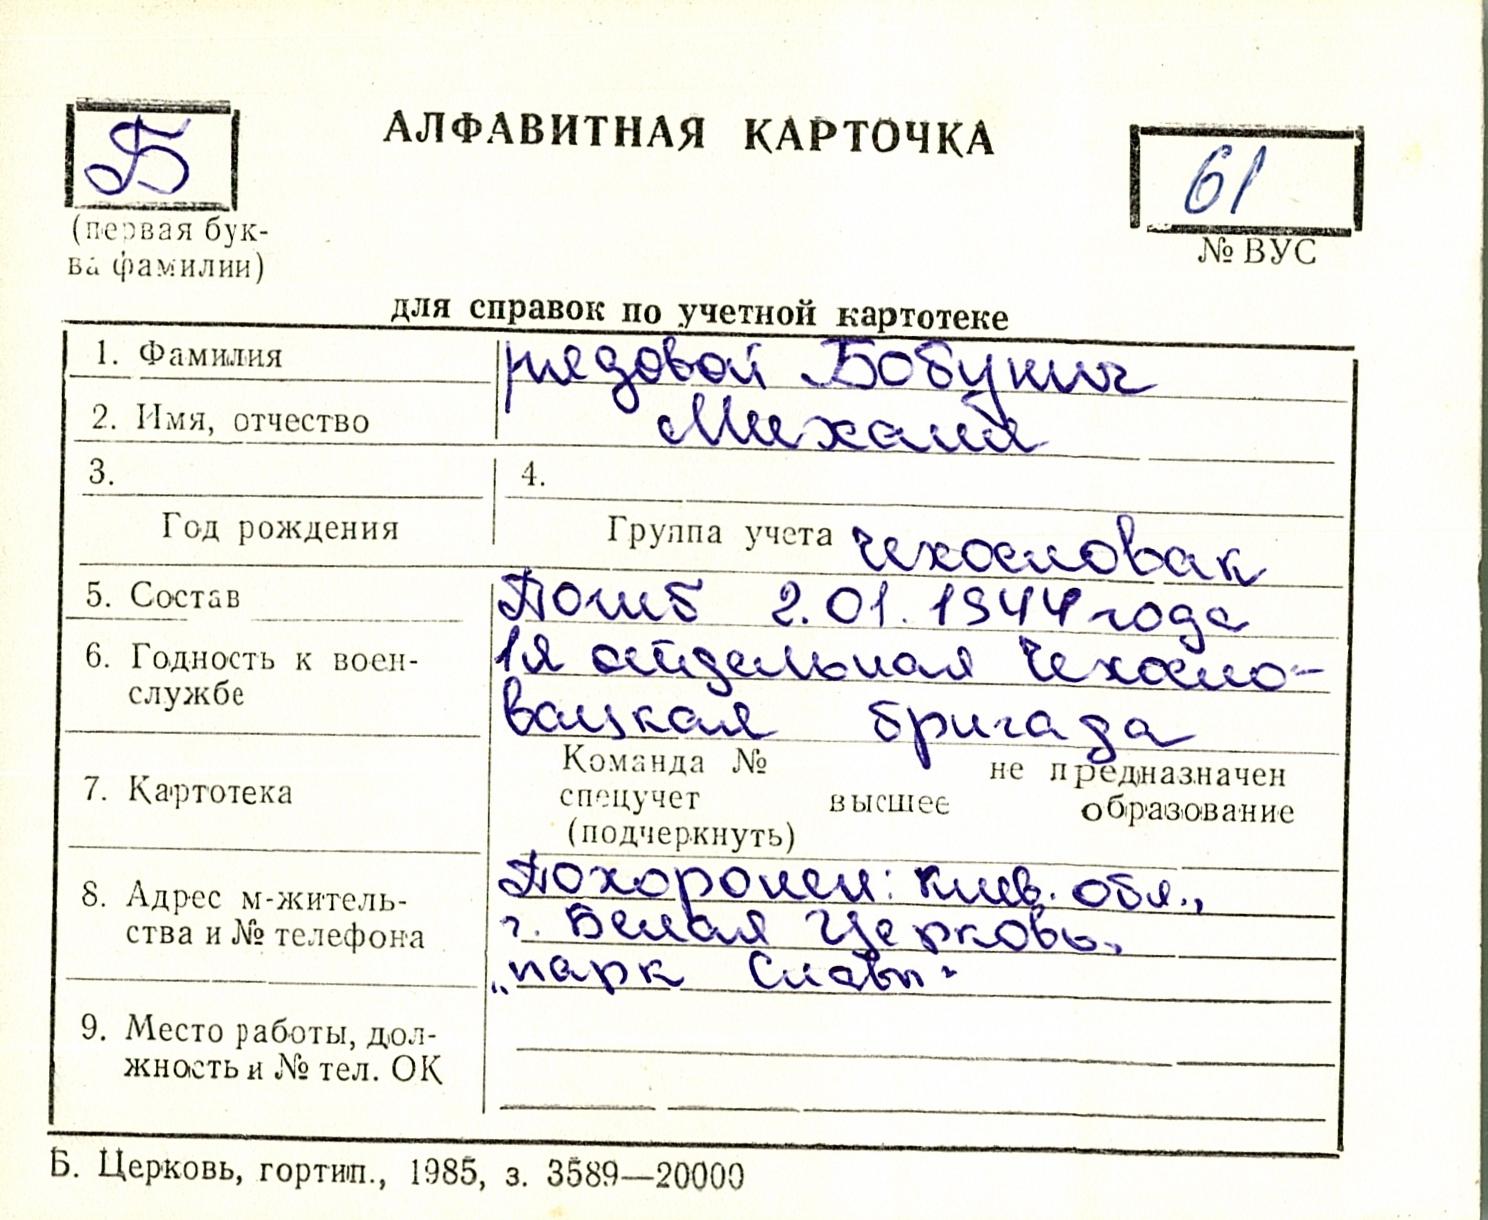 Б
АЛФАВИТНАЯ КАРТОЧКА
61
(первая бук-
ва фамилии)
№ ВУС
для справок по учетной картотеке
1. Фамилия рядовой Бобукич
2. Имя, отчество Михаил
3. 4.
Год рождения Группа учета чехословак
5. Состав Погиб 2.01.1944 года
6. Годность к воен- 1я отдельная Чехосло-
службе вацкая бригада
7. Картотека Команда № не предназначен
спецучет высшее образование
(подчеркнуть)
8. Адрес м-житель- Похоронен: Киев. обл.,
ства и № телефона г. Белая Церковь,
„парк Славы"
9. Место работы, дол-
жность и № тел. ОК
Б. Церковь, гортип., 1985, з. 3589—20000